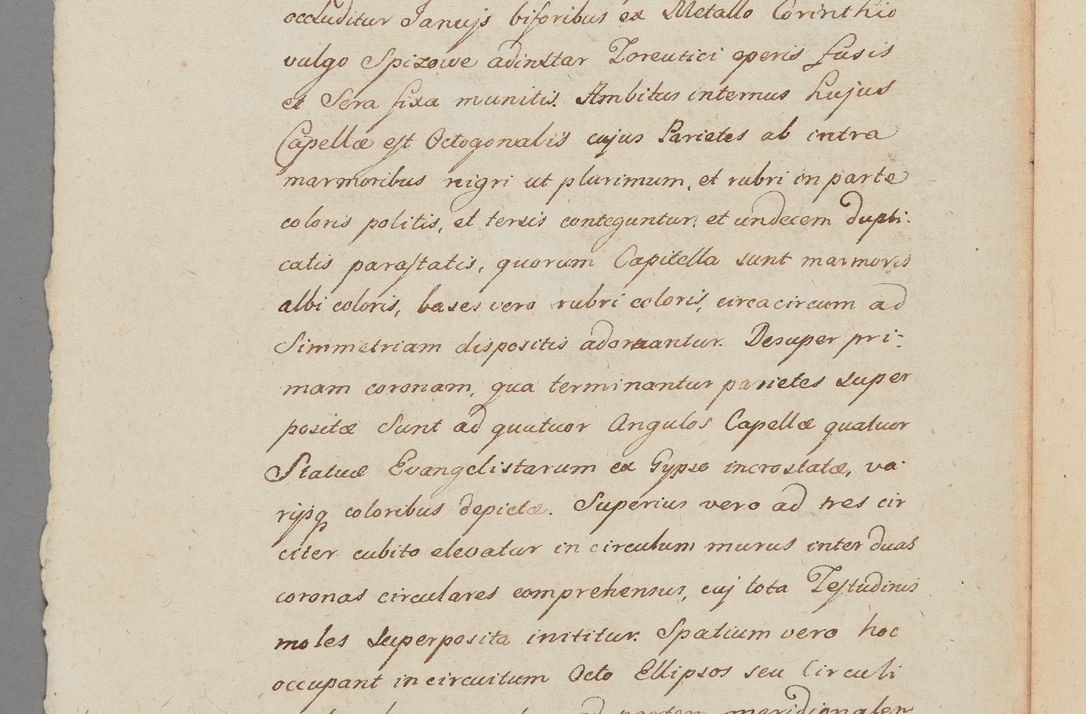 occluditur Janujs biforibus ex Metallo Corinthio
vulgo Spizowe adinstar Toreutici operis fusis
et Sera fixa munitis. Ambitus internus hujus
Capellæ est Octogonalis cujus Parietes ab intra
marmoribus nigri ut plurimum, et rubri in parte
coloris politis, et tersis conteguntur, et undecem dupli-
catis parastatis, quorum Capitella sunt marmoris
albi coloris, bases vero rubri coloris, circacircum ad
Simmetriam dispositis adornantur. Desuper pri-
mam coronam, qua terminantur parietes super
positæ sunt ad quatuor Angulos Capellæ quatuor
Statuæ Evangelistarum ex Gypso incrostatæ, va-
rijsq coloribus depictæ. Superius vero ad tres cir
citer cubito elevatur in circulum murus inter duas
coronas circulares comprehensus, cuj tota Testudinis
moles superposita inititur. Spatium vero hoc
occupant in circuitum Octo Ellipsos seu Circuli
ad partem meridionalem